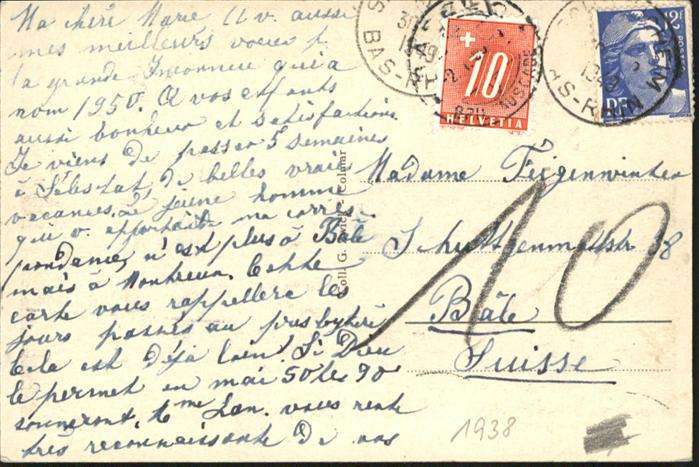 Ma chère Marie à v. aussi
mes meilleurs voeux p.
la grande Inconnue qui a
nom 1950. A vos enfants
aussi bonheur et satisfactions
Je viens de passer 5 semaines
à Sélestat de belles vraies
vacances. Le jeune homme
qui v. apportait ma corres-
pondance, n'est plus à Bâle
mais à Montreux. Cette
carte vous rappellera les
jours passés au presbytère
Cela est déjà loin! Si Dieu
le permet en mai 50 les 90
sonneront. Me vous reste
très reconnaissante de vos
Madame Feigenwinter
Schützenmattstr 38
Bâle
Suisse
10
1938
Coll. G. Colmar
+
10
HELVETIA
BAS-RHIN
BAS-RHIN
RF